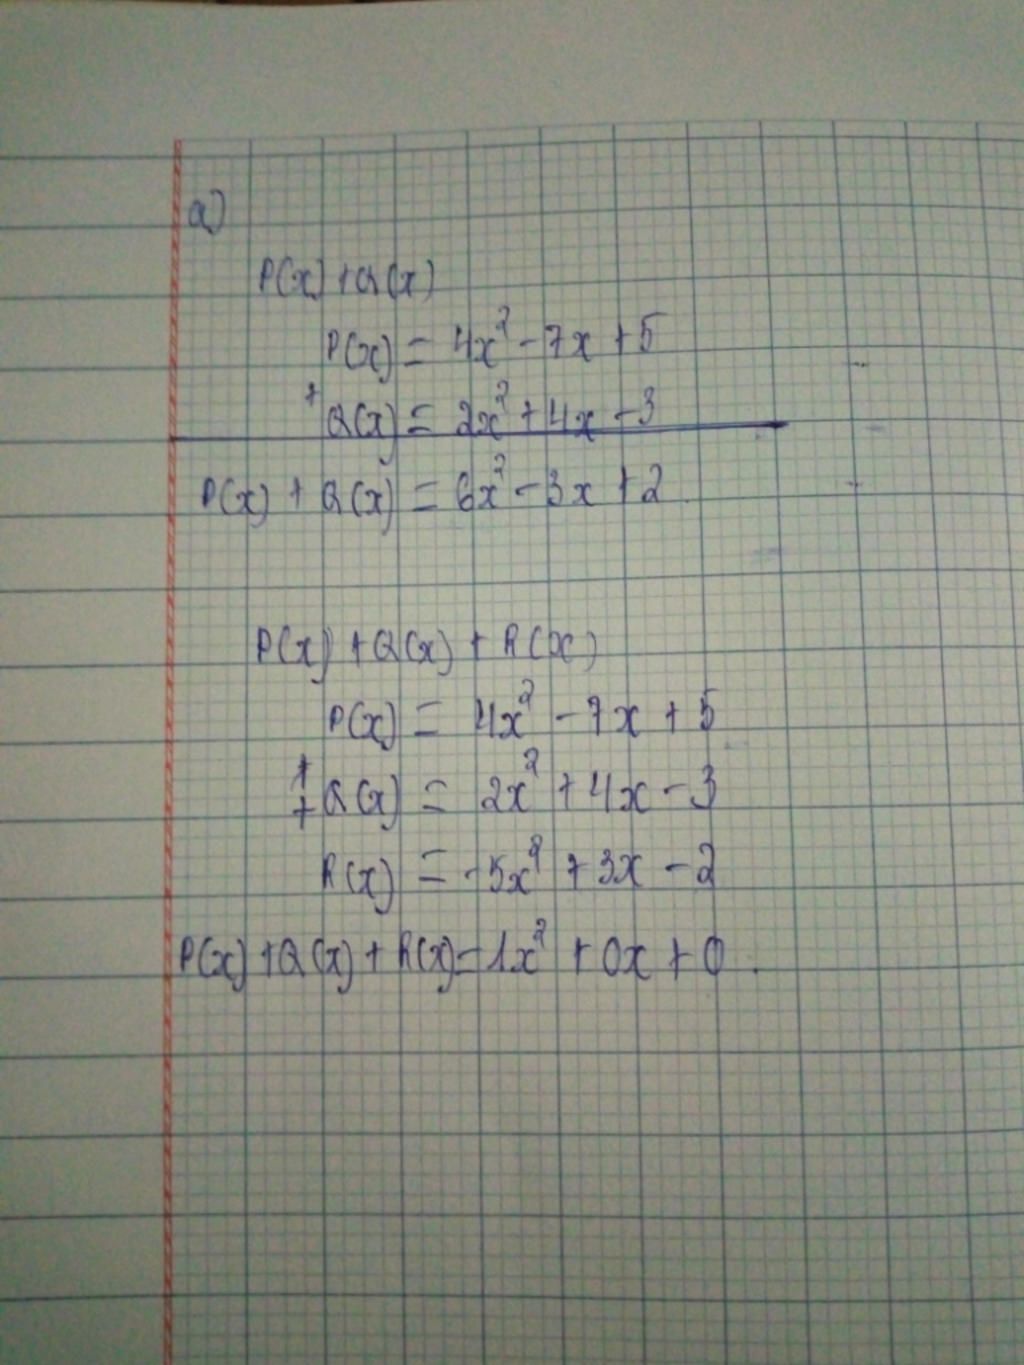 a)
P(x) + Q(x)
P(x) = 4x² - 7x + 5
+ Q(x) = 2x² + 4x - 3
P(x) + Q(x) = 6x² - 3x + 2
P(x) + Q(x) + R(x)
P(x) = 4x² - 7x + 5
+ + Q(x) = 2x² + 4x - 3
R(x) = -5x² + 3x - 2
P(x) + Q(x) + R(x) = 1x² + 0x + 0.